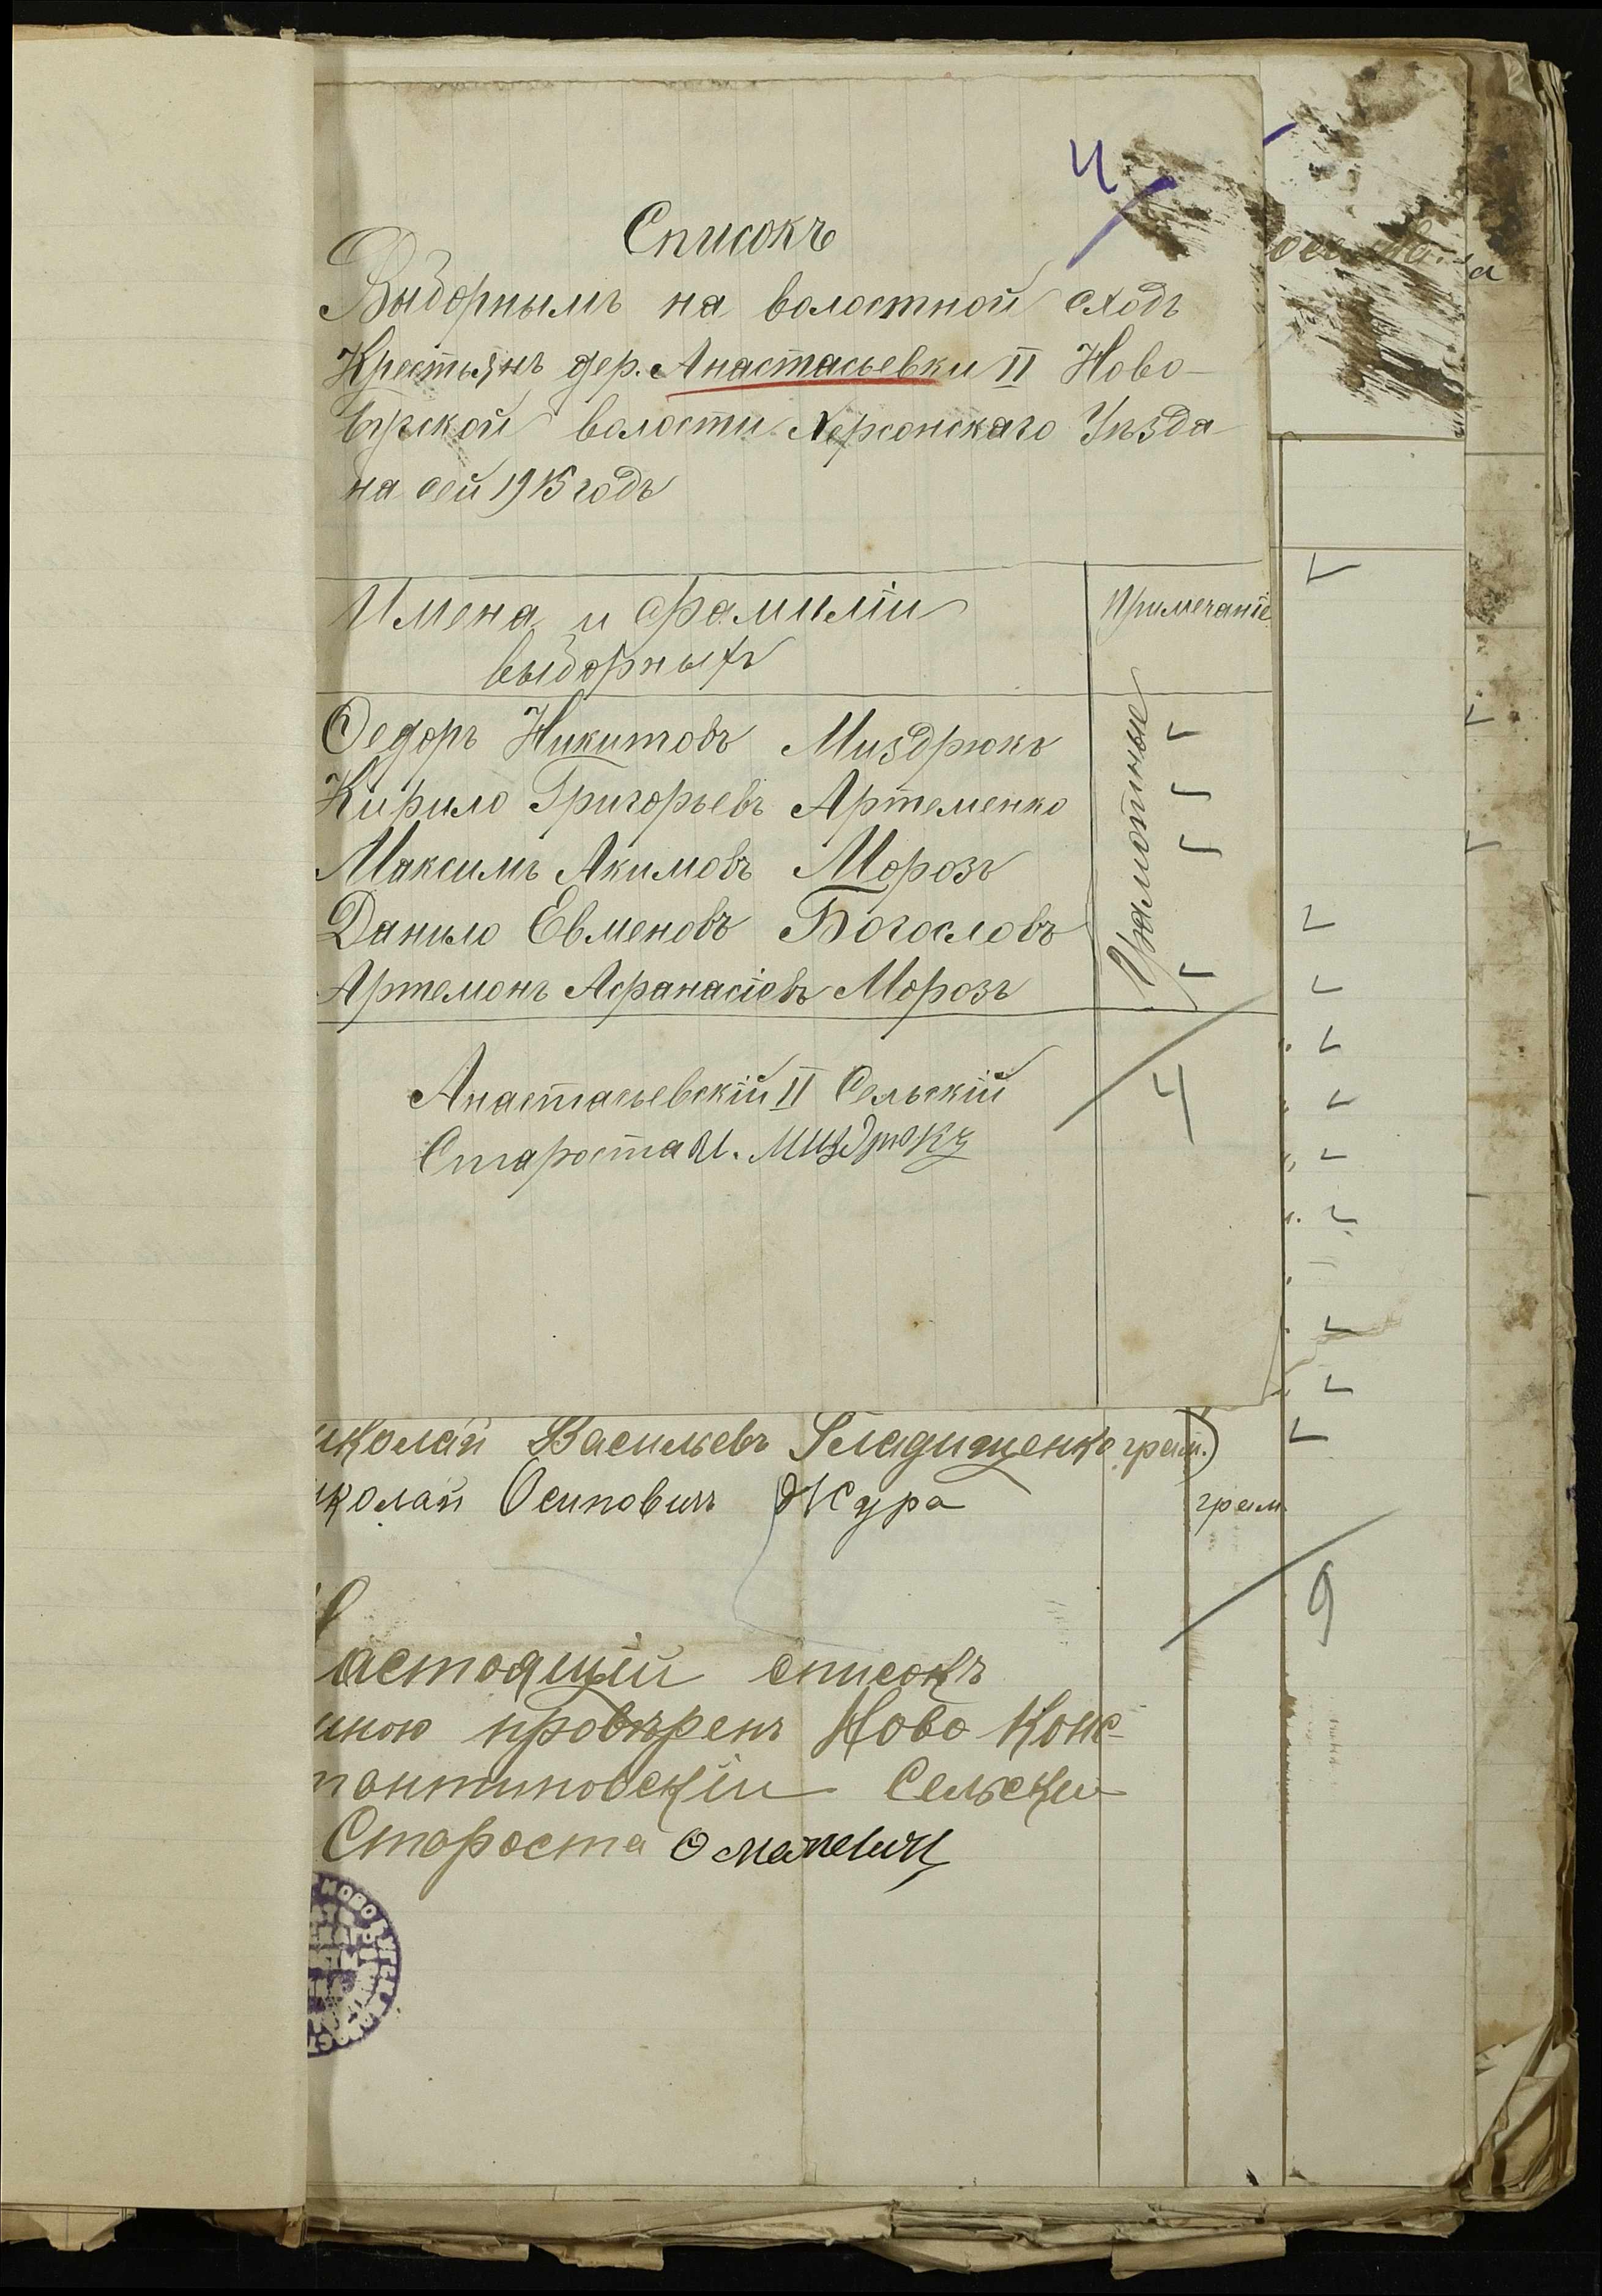 4
Списокъ
Выборнымъ на волостной сходъ
Крестьянъ дер. Анастасьевки II Ново-
бугской волости Херсонскаго Уѣзда
на сей 1915 годъ
Имена и фамиліи
выборныхъ
Примечаніе
Федоръ Никитовъ Миздрюкъ
Кирило Григорьевъ Артеменко
Максимъ Акимовъ Морозъ
Данило Евменовъ Богословъ
Артемонъ Афанасіевъ Морозъ
Грамотные
Анастасьевскій II Сельскій
Староста И. Миздрюкъ
4
иколай Васильевъ Гладищенко грам.)
иколай Осиповичъ Жура грам.
9
астоящій списокъ
мною провѣренъ Ново Конс-
тантиновскій Сельски
Староста